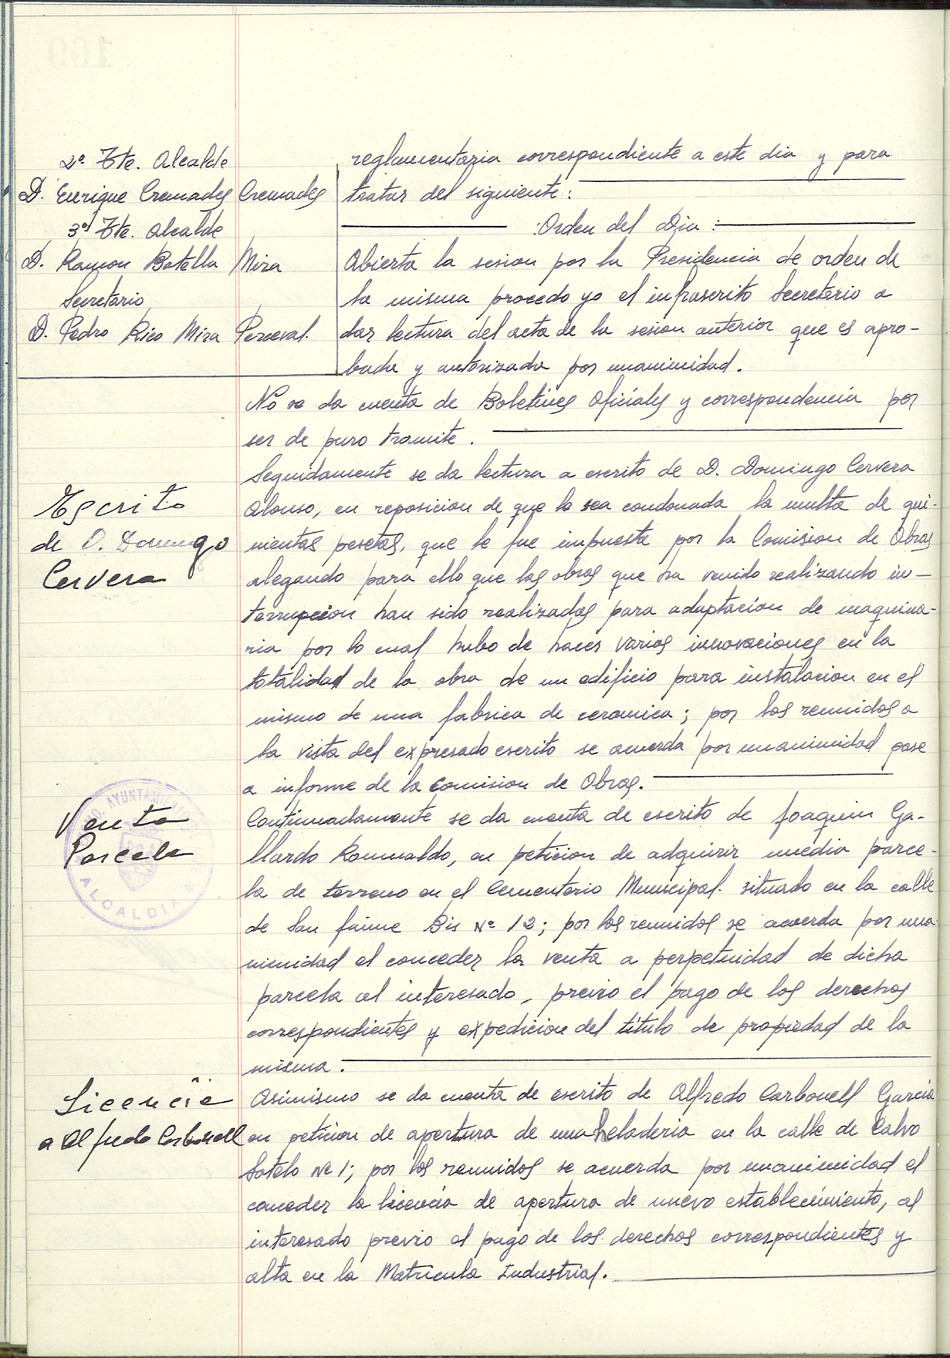 2º Tte. Alcalde
D. Enrique Cremades Cremades
3º Tte. Alcalde
D. Ramon Botella Mira
Secretario
D. Pedro Rico Mira Perceval.
reglamentaria correspondiente a este dia y para
tratar del siguiente:
:Orden del Dia:
Abierta la sesion por la Presidencia de orden de
la misma procedo yo el infrascrito Secretario a
dar lectura del acta de la sesion anterior que es apro-
bada y autorizada por unanimidad.
No se da cuenta de Boletines Oficiales y correspondencia por
ser de puro tramite.
Escrito
de D. Domingo
Cervera
Seguidamente se da lectura a escrito de D. Domingo Cervera
Alonso, en reposicion de que le sea condonada la multa de qui-
nientas pesetas, que le fue impuesta por la Comision de Obras
alegando para ello que las obras que ha venido realizando in-
terrupcion han sido realizadas para adaptacion de maquina-
ria por lo cual hubo de hacer varias innovaciones en la
totalidad de la obra de un edificio para instalacion en el
mismo de una fabrica de ceramica; por los reunidos a
la vista del expresado escrito se acuerda por unanimidad pase
a informe de la Comision de Obras.
Venta
Parcela
AYUNTAMIENTO
ALCALDIA
Continuadamente se da cuenta de escrito de Joaquin Ga-
llardo Romualdo, en peticion de adquirir media parce-
la de terreno en el Cementerio Municipal. situado en la calle
de San Jaime Bis Nº 12; por los reunidos se acuerda por una
nimidad el conceder la venta a perpetuidad de dicha
parcela al interesado, previo el pago de los derechos
correspondientes y expedicion del titulo de propiedad de la
misma.
Licencia
a Alfredo Carbonell
Asimismo se da cuenta de escrito de Alfredo Carbonell Garcia
en peticion de apertura de una heladeria en la calle de Calvo
Sotelo Nº 1; por los reunidos se acuerda por unanimidad el
conceder la licencia de apertura de nuevo establecimiento, al
interesado previo el pago de los derechos correspondientes y
alta en la Matricula Industrial.